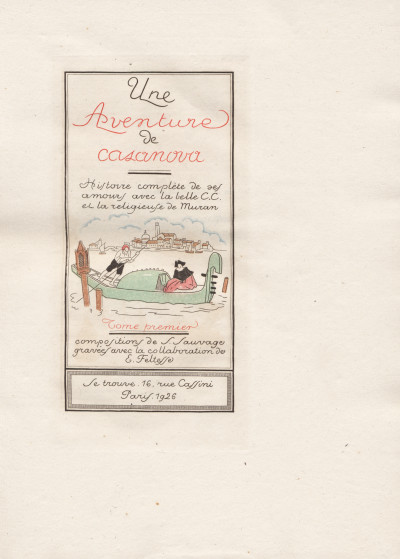 Une
Aventure
de
Casanova
Histoire complète de ses
amours avec la belle C.C.
et la religieuse de Muran
Tome premier
compositions de S. Sauvage
gravées avec la collaboration de
E. Feltesse
Se trouve. 16, rue Cassini
Paris. 1926